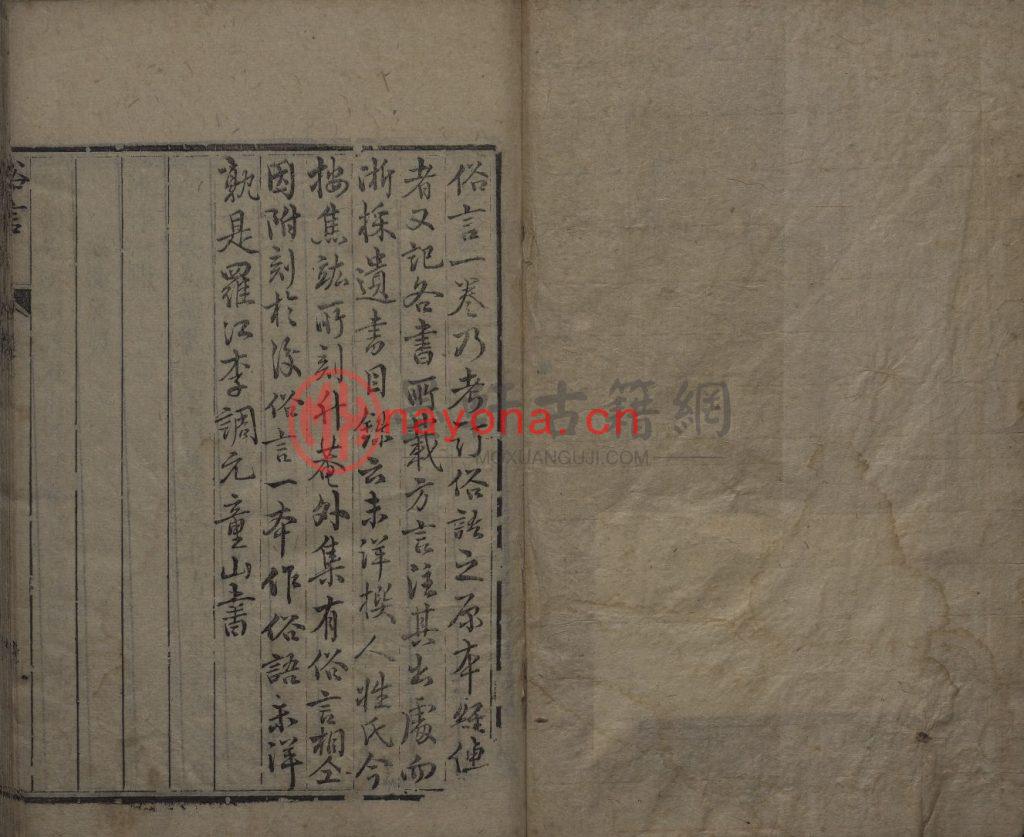 俗言一卷乃考訂俗語之原本經傳
者又記各書所載方言注其出處而
浙採遺書目錄云未詳撰人姓氏今
按焦竑所刻升菴外集有俗言相仝
因附刻於後俗言一本作俗語未詳
孰是羅江李調元童山書
俗言
古籍網
nayona.cn
MOXUANGUJI.COM